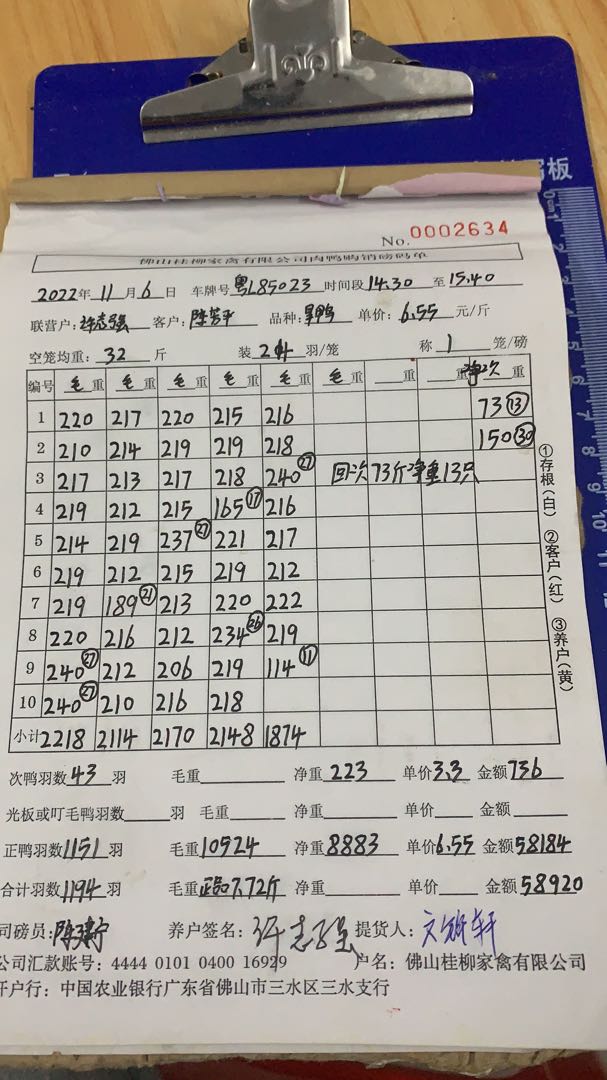 No. 0002634
佛山桂柳家禽有限公司肉鸭购销磅码单
2022年 11月 6日 车牌号 粤L85023 时间段 14.30 至 15.40
联营户: 许志强 客户: 陈芳平 品种: 旱鸭 单价: 6.55 元/斤
空笼均重: 32 斤 装 24 羽/笼 称 1 笼/磅
编号 毛重 毛重 毛重 毛重 毛重 毛重 重 重 净次重
1 220 217 220 215 216 73⑬
2 210 214 219 219 218 150㉚
3 217 213 217 218 240㉗ 回次73斤净重13只
4 219 212 215 165⑰ 216
5 214 219 237㉗ 221 217
6 219 212 215 219 212
7 219 189㉑ 213 220 222
8 220 216 212 234㉖ 219
9 240㉗ 212 206 219 114⑪
10 240㉗ 210 216 218
小计 2218 2114 2170 2148 1874
①存根(白) ②客户(红) ③养户(黄)
次鸭羽数 43 羽 毛重 净重 223 单价 3.3 金额 736
光板或叮毛鸭羽数 羽 毛重 净重 单价 金额
正鸭羽数 1151 羽 毛重 10524 净重 8883 单价 6.55 金额 58184
合计羽数 1194 羽 毛重 正品7.72斤 净重 单价 金额 58920
司磅员: 养户签名: 许志强 提货人:
公司汇款账号: 4444 0101 0400 16929 户名: 佛山桂柳家禽有限公司
开户行: 中国农业银行广东省佛山市三水区三水支行